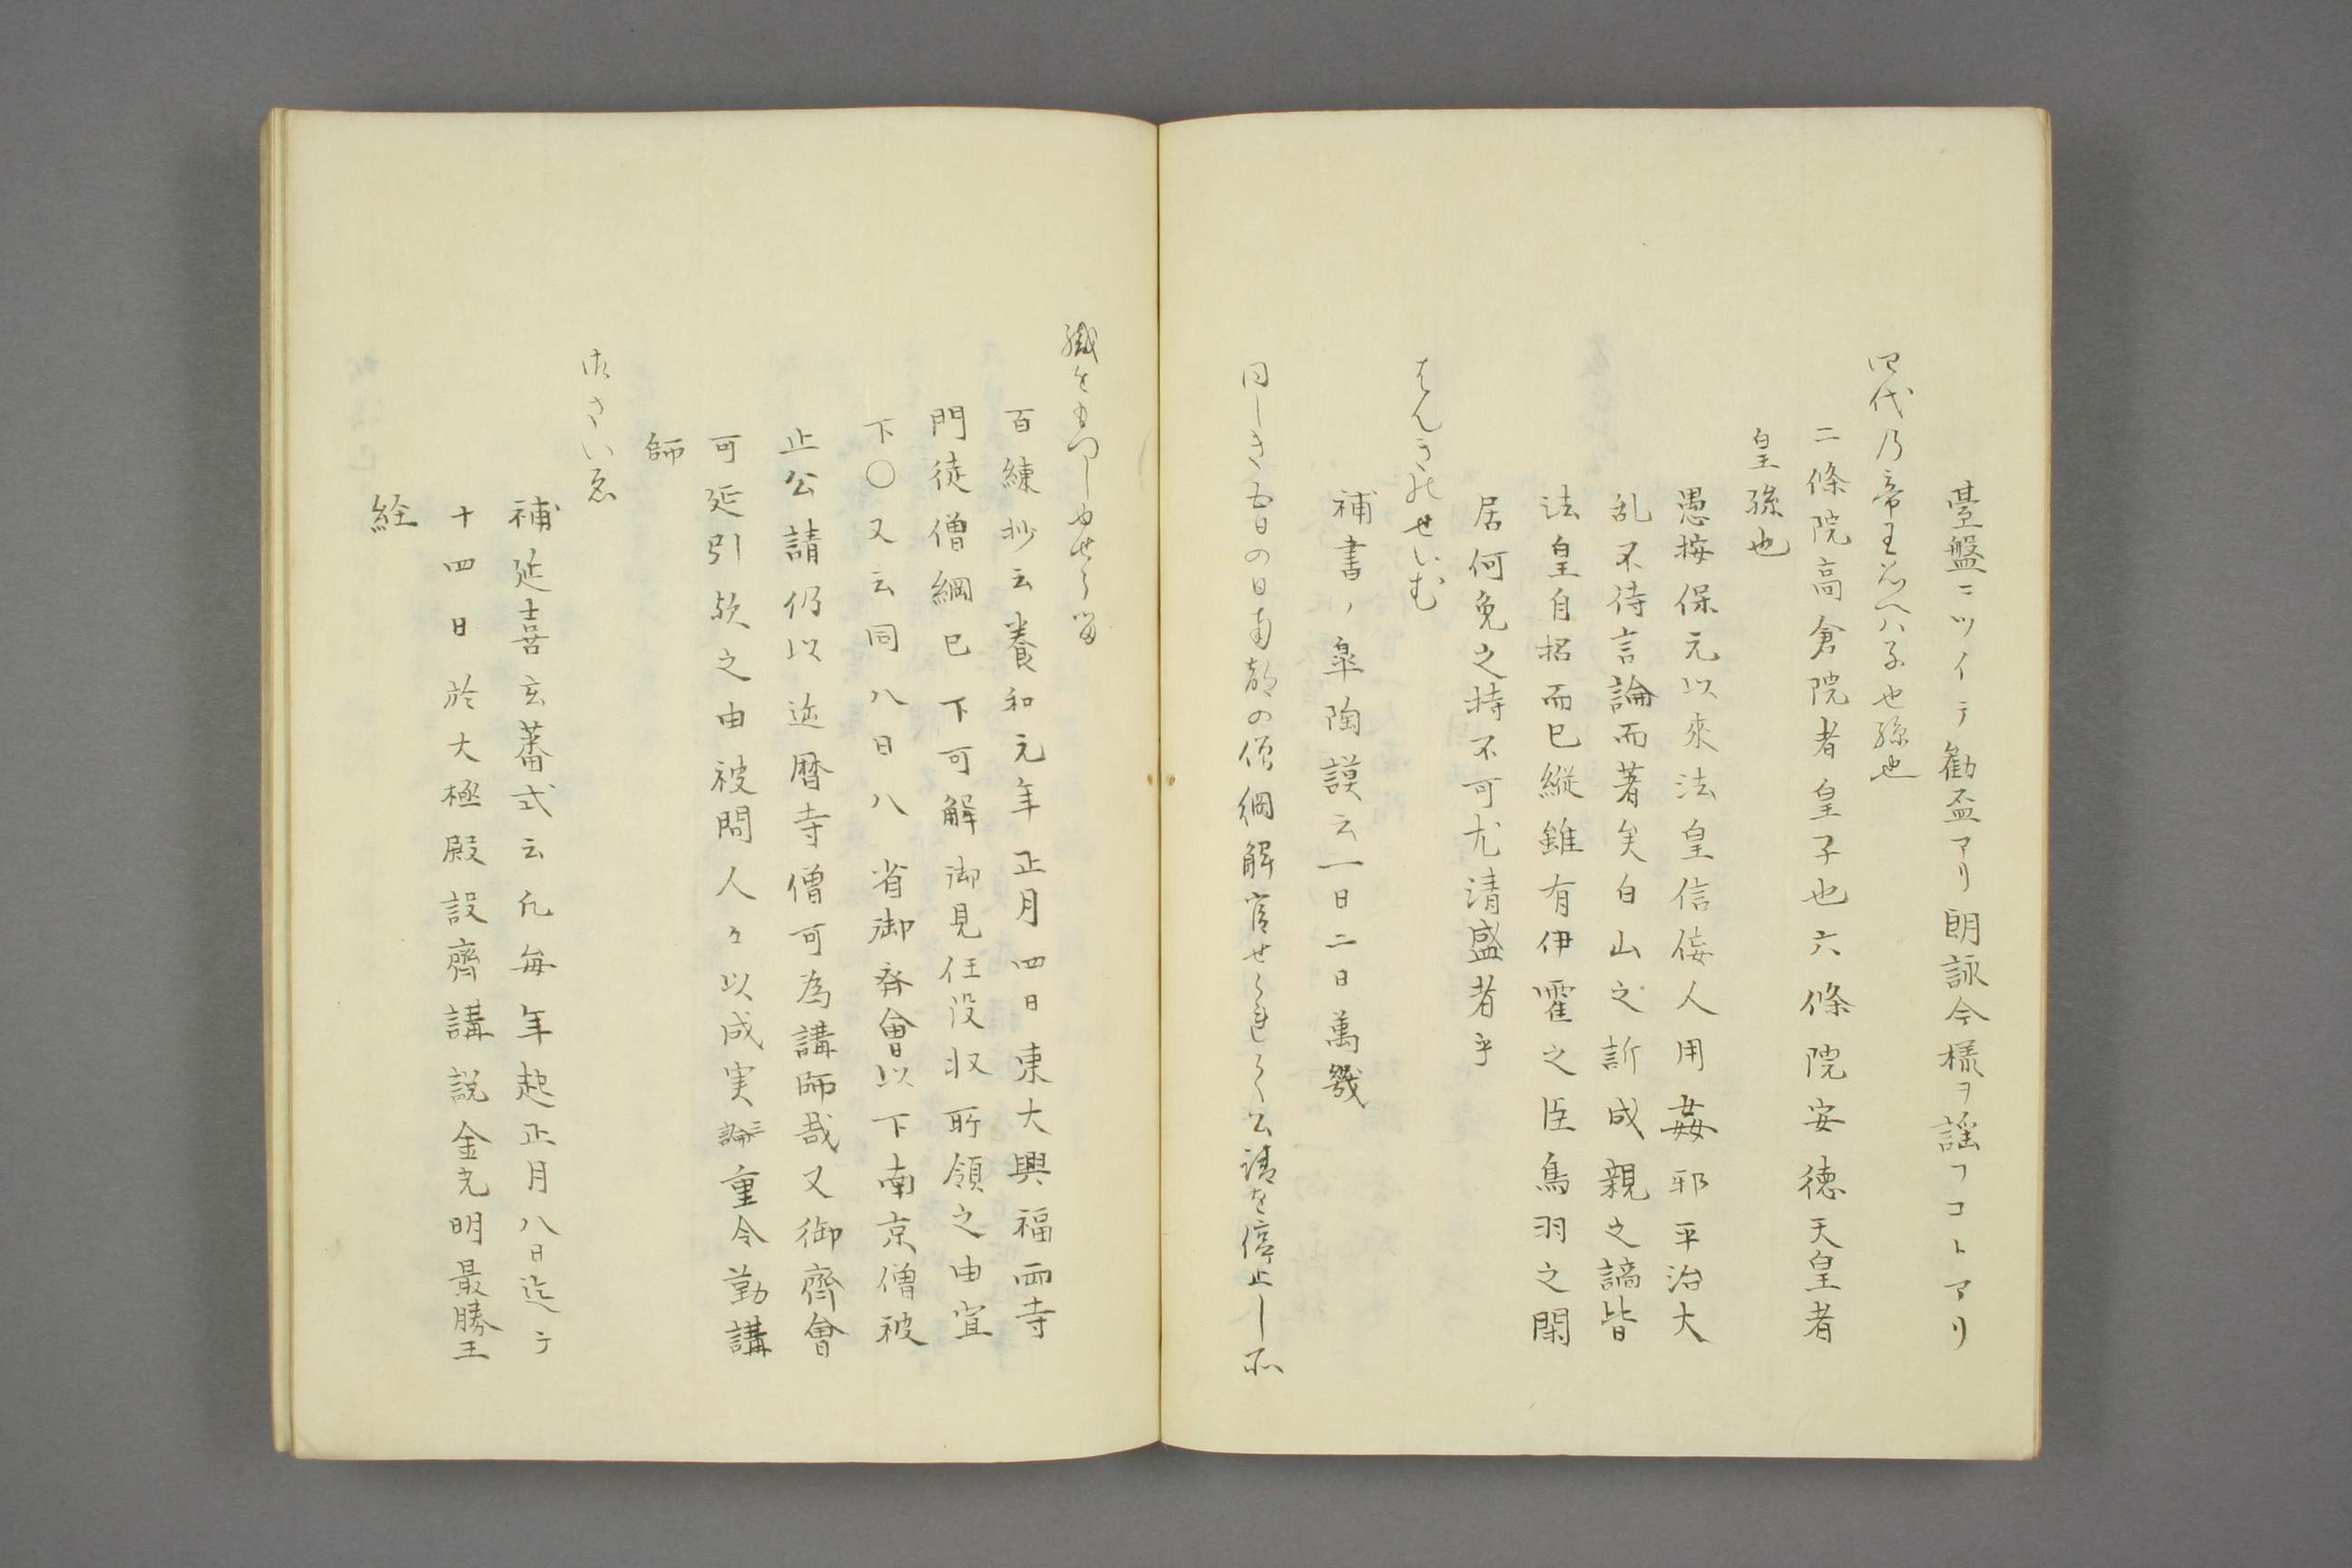 臺盤ニツイテ勸盃アリ朗詠今樣ヲ謡フコトアリ
四代乃帝王思へハ子也孫也
二條院高倉院者皇子也六條院安徳天皇者
皇孫也
愚按保元以來法皇信倿人用姦邪平治大
乱不待言論而著矣白山之訴成親之謫皆
法皇自招而已縦雖有伊霍之臣鳥羽之閑
居何免之特不可尤清盛者乎
はんきのせいむ
補書ノ皐陶謨云一日二日萬幾
同しき五日の日南都の僧綱解官せられて公請を停止し所
職をもつしゆせらる
百練抄云養和元年正月四日東大興福両寺
門徒僧綱已下可解御見任没収所領之由宣
下〇又云同八日八省御斎會以下南京僧被
止公請仍以延暦寺僧可為講師哉又御齊會
可延引歟之由被問人々以成実三論重令勤講
師
御さいゑ
補延喜玄蕃式云凢毎年起正月八日迄テ
十四日於大極殿設齊講説金光明最勝王
経